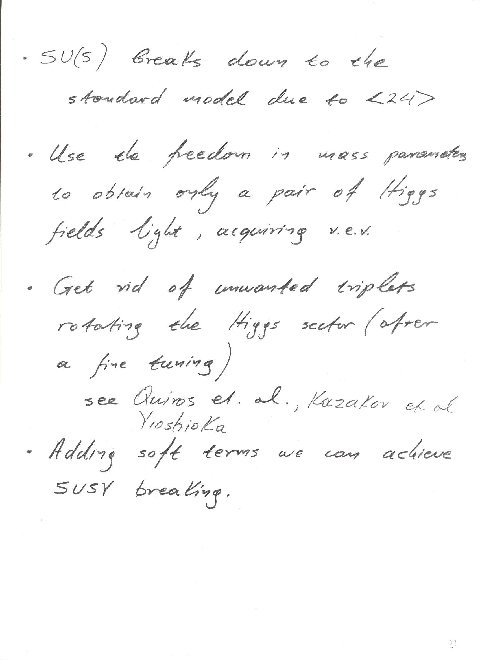 · SU(5) breaks down to the
standard model due to <24>
· Use the freedom in mass parameters
to obtain only a pair of Higgs
fields light, acquiring v.e.v.
· Get rid of unwanted triplets
rotating the Higgs sector (after
a fine tuning)
see Quiros et. al., Kazakov et. al
Yioshioka
· Adding soft terms we can achieve
SUSY breaking.